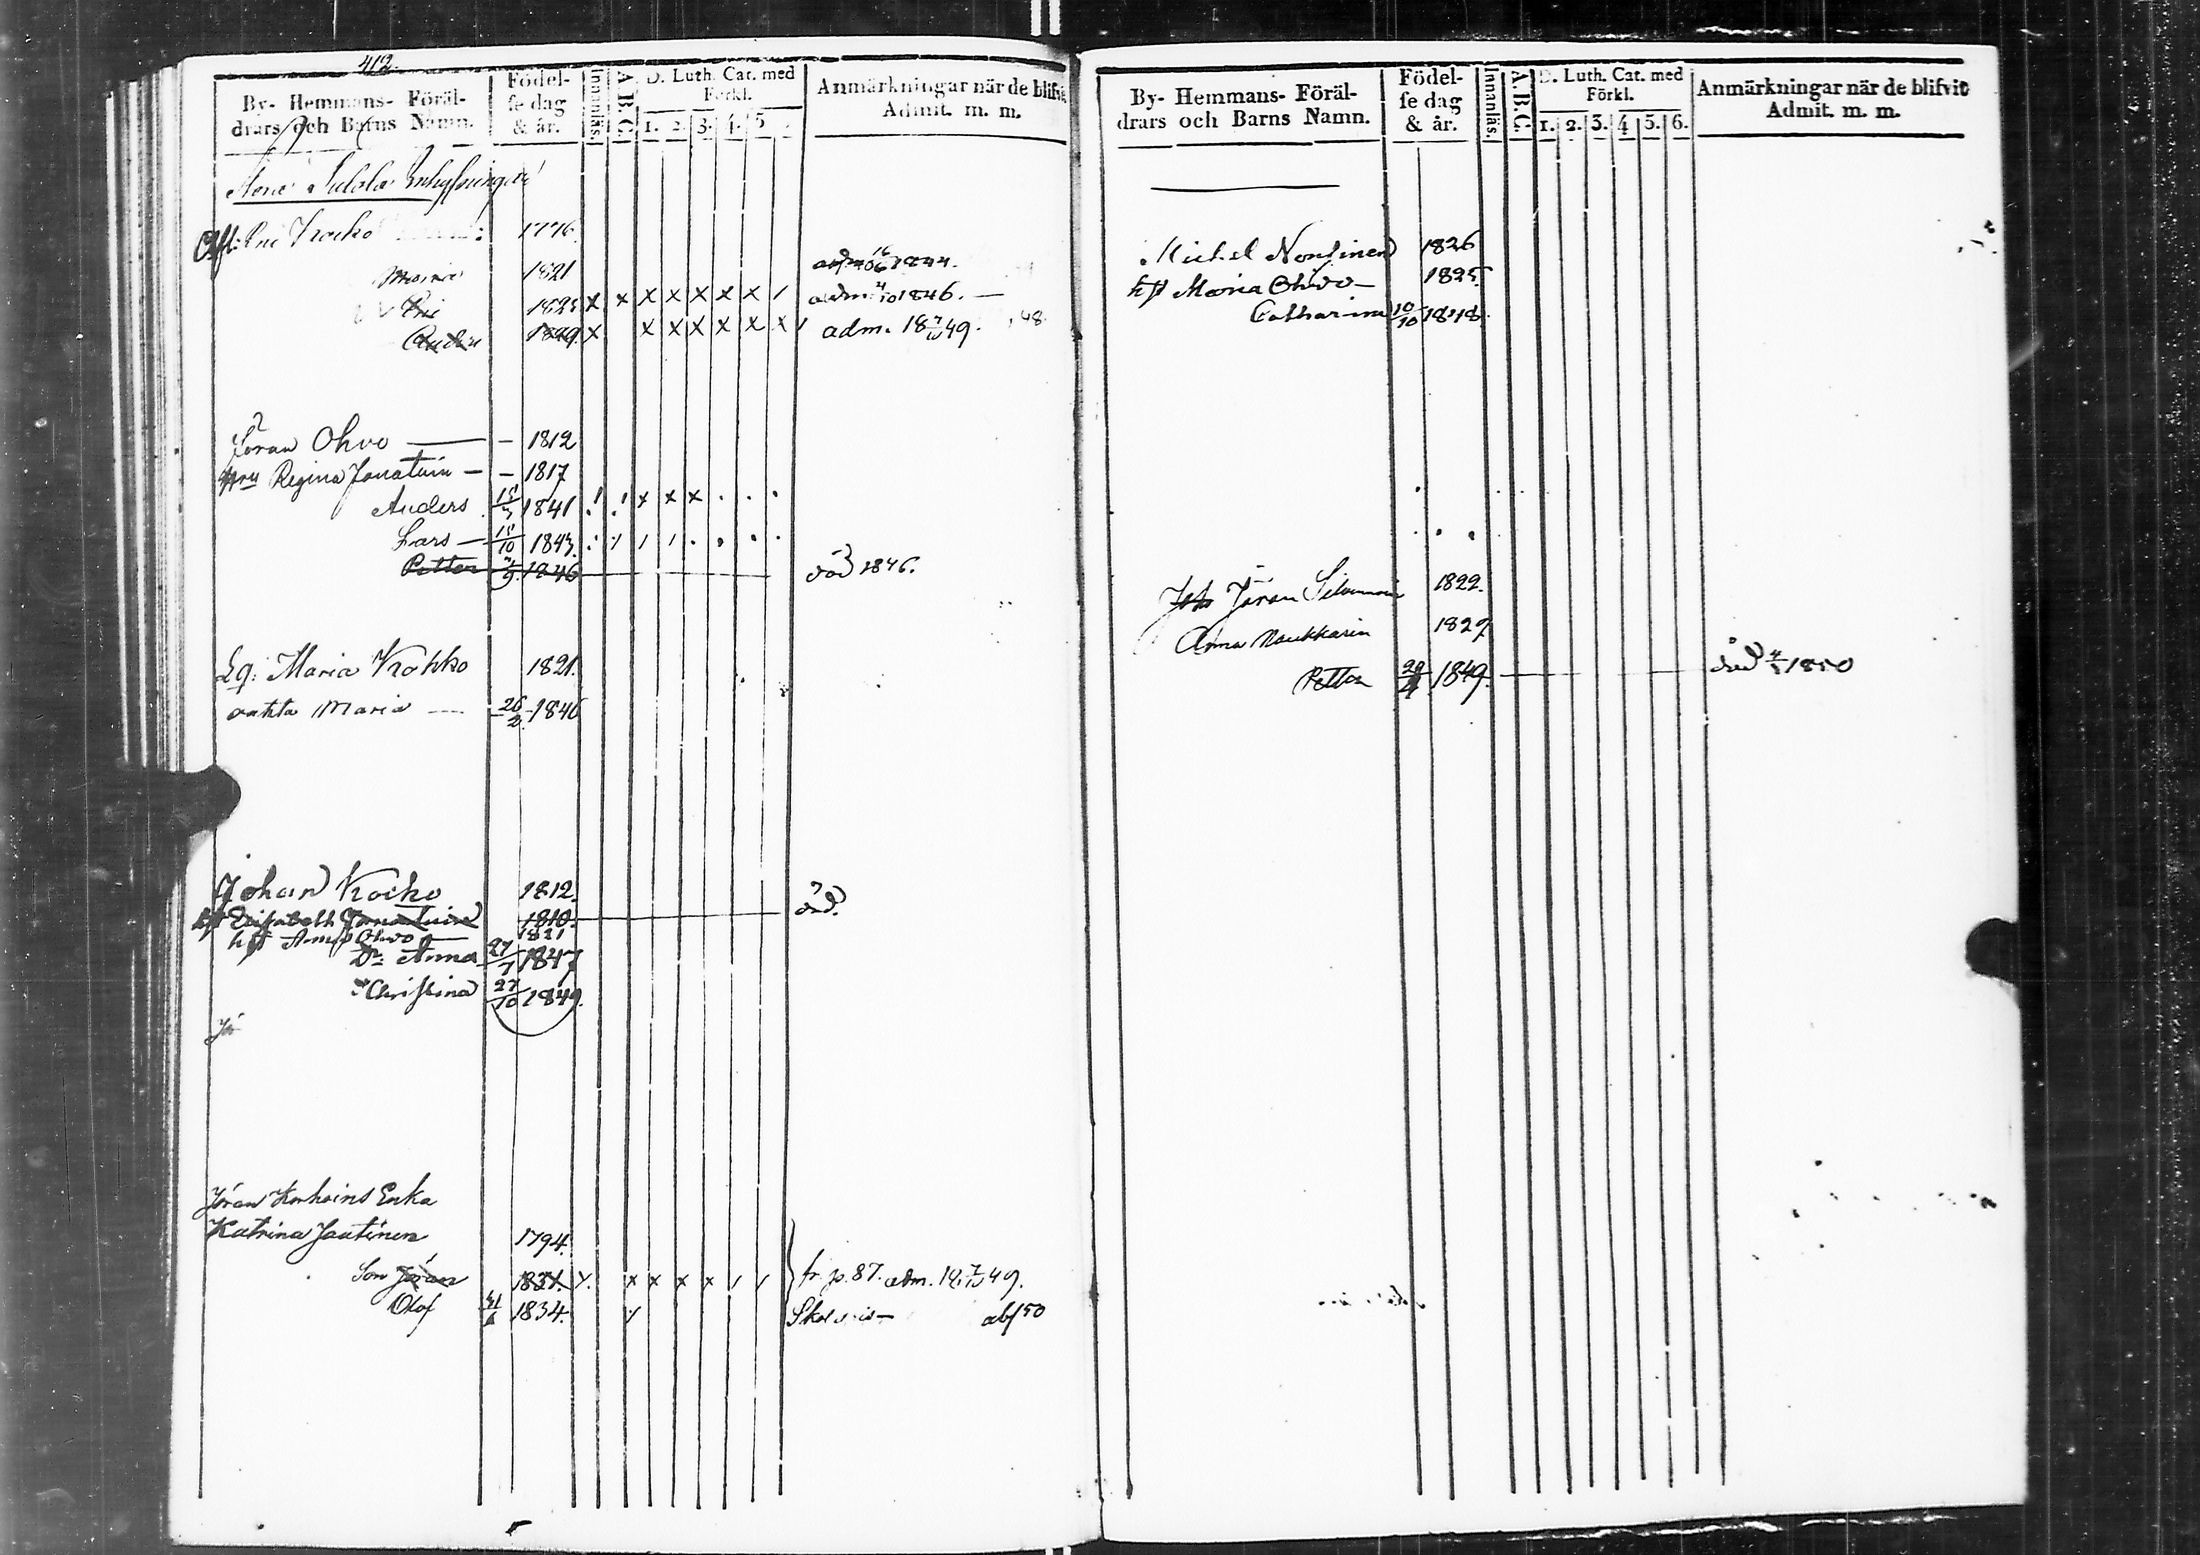 412.
By- Hemmans- Föräl-
drars och Barns Namn.
Födel-
se dag
& år.
Innanläs.
A.B.C.
D. Luth. Cat. med
Förkl.
1. 2. 3. 4. 5
Anmärkningar när de blifvit
Admit. m. m.
Sulola Inhysningar
1776.
Maria 1821 adm. 1844.
1825 x x x x x x x / adm. 1846. —
1829. x x x x x x x adm. 18 49. 48.
Jöran Ohvo — 1812
Regina Janatuin — 1817
Anders 1841 x x x
Lars — 15/10 1843.
Petter 1846 död 1846.
Lq: Maria Kokko 1821.
oäkta Maria — 26/2 1846
Johan Kocko 1812.
hst Elisabeth Janatuin 1810. död.
hst Anna Ohvo 1821
Dr Anna 27/7 1847
" Christina 27/10 1849.
Jö
Jöran Korhoins Enka
Katrina Jautinen 1794.
Son Jöran 1831. x x x x / / fr. p. 87. adm. 18 49.
Olof 1834. abs 50
By- Hemmans- Föräl-
drars och Barns Namn.
Födel-
se dag
& år.
Innanläs.
A.B.C.
D. Luth. Cat. med
Förkl.
1. 2. 3. 4 5. 6.
Anmärkningar när de blifvit
Admit. m. m.
Michel Nousinen 1826
hst Maria Ohvo — 1825.
Catharina 10/10 1848.
Joh Jöran Silvennoin 1822.
Anna Naukkarin 1827
Petter 1849. död 1850